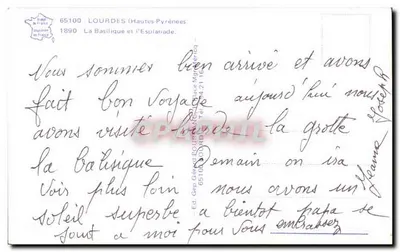 65100 LOURDES (Hautes-Pyrénées)
1890 La Basilique et l'Esplanade.
Nous sommier bien arrivé et avons
fait bon voyage aujourd'hui nous
avons visité lourde la grotte
la Balisique Demain on ira
voir plus loin nous avons un
soleil superbe a bientot papa se
joint a moi pour vous embrasser
Jeanne Joseph